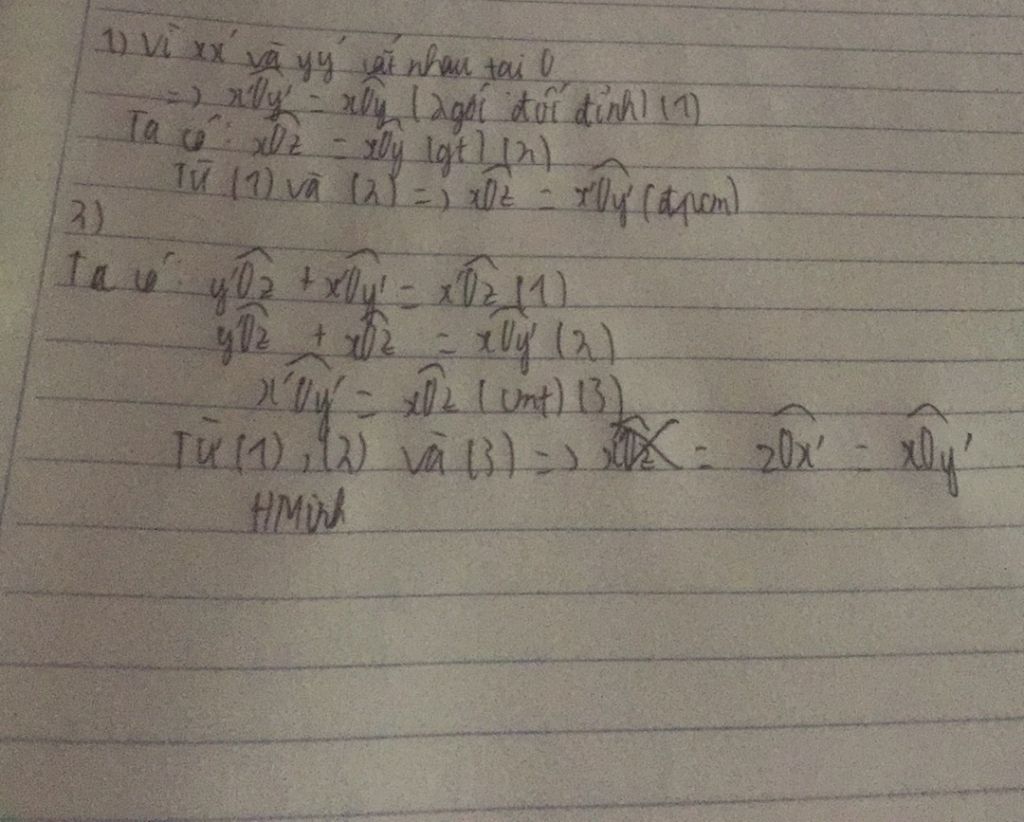 1) Vì xx' và yy' cắt nhau tại O
=> x'Oy' = xOy (2 gói đối đỉnh) (1)
Ta có: xOz = xOy (gt) (2)
Từ (1) và (2) => xOz = x'Oy' (đpcm)
2)
Ta có: y'Oz + x'Oy' = x'Oz (1)
y'Oz + xOz = xOy' (2)
x'Oy' = xOz (cmt) (3)
Từ (1), (2) và (3) => = zOx' = xOy'
HMinh